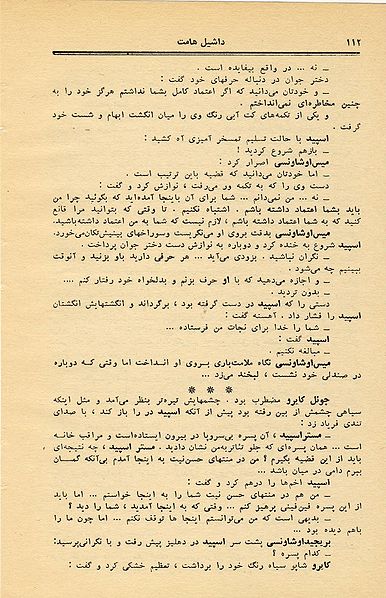 ۱۱۲ داشیل هامت
ــ نه ... در واقع بیفایده است .
دختر جوان در دنباله حرفهای خود گفت :
ــ و خودتان می‌دانید که اگر اعتماد کامل بشما نداشتم هرگز خود را به
چنین مخاطره‌ای نمی‌انداختم .
و یکی از تکمه‌های کت آبی رنگ وی را میان انگشت ابهام و شست خود
گرفت .
اسپید با حالت تسلیم تمسخر آمیزی آه کشید :
ــ بازهم شروع کردید !
میس‌اوشاونسی اصرار کرد :
ــ اما خودتان می‌دانید که قضیه باین ترتیب است .
دست وی را که به تکمه ور می‌رفت ، نوازش کرد و گفت :
ــ نه ... من نمی‌دانم ... شما برای آن باینجا آمده‌اید که بگوئید چرا من
باید بشما اعتماد داشته باشم . اشتباه نکنیم . تا وقتی که بتوانید مرا قانع
کنید که به شما اعتماد داشته باشم ، لازم نیست که شما به من اعتماد داشته‌باشید.
میس‌اوشاونسی بدقت بروی او می‌نگریست و سوراخهای بینیش‌تکان‌می‌خورد.
اسپید شروع به خنده کرد و دوباره به نوازش دست دختر جوان پرداخت .
ــ نگران نباشید . بزودی می‌آید ... هر حرفی دارید باو بزنید و آنوقت
ببینیم چه می‌شود .
ــ و اجازه می‌دهید که با او حرف بزنم و بدلخواه خود رفتار کنم ....
ــ بدون تردید .
دستی را که اسپید در دست گرفته بود ، برگرداند و انگشتهایش انگشتان
اسپید را فشار داد . آهسته گفت :
ــ شما را خدا برای نجات من فرستاده ...
اسپید گفت :
ــ مبالغه نکنیم .
میس‌اوشاونسی نگاه ملامت‌باری بروی او انداخت اما وقتی که دوباره
در صندلی خود نشست ، لبخند می‌زد ...
* * *
جوئل کایرو مضطرب بود . چشمهایش تیره‌تر بنظر می‌آمد و مثل اینکه
سیاهی چشمش از بین رفته بود پیش از آنکه اسپید در را باز کند ، با صدای
تندی فریاد زد :
ــ مستر اسپید ، آن پسره بی‌سروپا در بیرون ایستاده‌است و مراقب خانه
است ... همان پسره‌ای که جلو تئاتر به‌من نشان دادید . مستر اسپید ، چه نتیجه‌ای
باید از این قضیه بگیرم ؟ من در منتهای حسن‌نیت به اینجا آمدم بی‌آنکه گمان
ببرم دامی در میان باشد ...
اسپید اخم‌ها را درهم کرد و گفت :
ــ من هم در منتهای حسن نیت شما را به اینجا خواستم ... اما باید
از این پسره قین‌قینی پرهیز کنم ... وقتی که به اینجا آمدید ، شما را دید ؟
ــ بدیهی است که من می‌توانستم اینجا ها توقف نکنم ... اما چون ما را
باهم دیده بود ...
بریجیداوشاونسی پشت سر اسپید در دهلیز پیش رفت و با نگرانی‌پرسید:
ــ کدام پسره ؟
کایرو شاپو سیاه رنگ خود را برداشت ، تعظیم خشکی کرد و گفت :